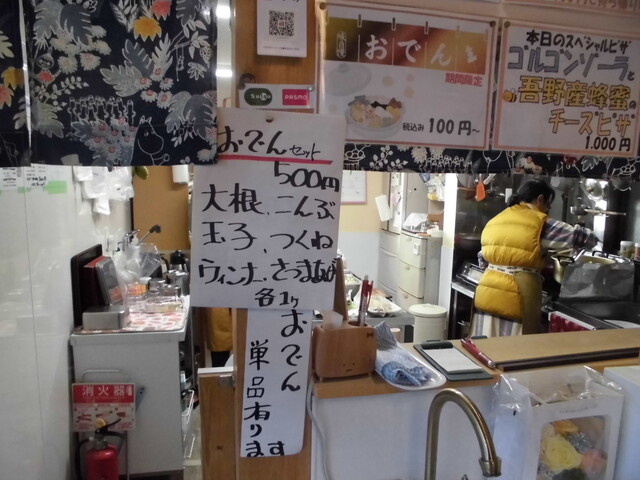 おでん
期間限定
税込み 100円～
本日のスペシャルピザ
ゴルゴンゾーラと
吾野産蜂蜜
チーズピザ
1,000円
Suica
PASMO
おでんセット
500円
大根、こんぶ
玉子、つくね
ウィンナー、さつまあげ
各1ケ
おでん
単品有ります
消火器